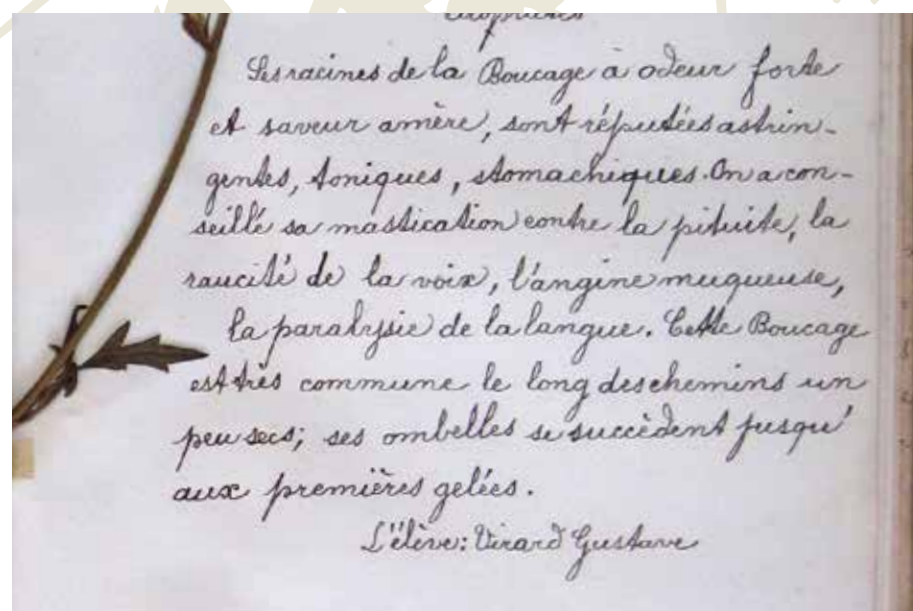 Propriétés
Les racines de la Boucage à odeur forte
et saveur amère, sont réputées astrin-
gentes, toniques, stomachiques. On a con-
seillé sa mastication contre la pituite, la
raucité de la voix, l'angine muqueuse,
la paralysie de la langue. Cette Boucage
est très commune le long des chemins un
peu secs; ses ombelles se succèdent jusqu'
aux premières gelées.
L'élève: Virard Gustave